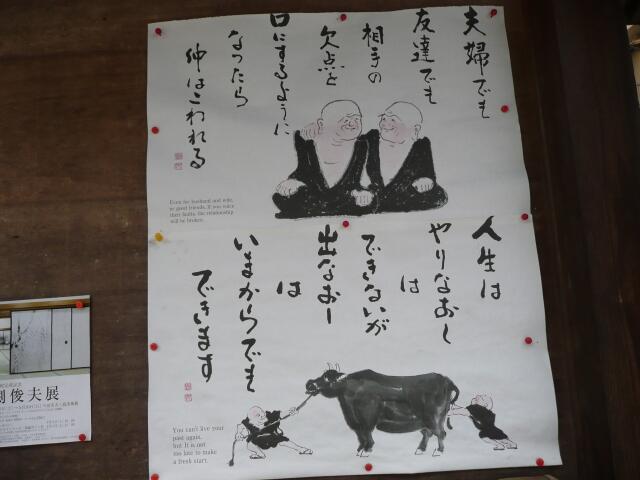 夫婦でも
友達でも
相手の
欠点を
口にするように
なったら
仲はこわれる
Even for husband and wife,
or good friends, if you voice
their faults, the relationship
will be broken.
人生は
やりなおし
は
できないが
出なおし
は
いまからでも
できます
You can't live your
past again,
but It is not
too late to make
a fresh start.
俊夫展